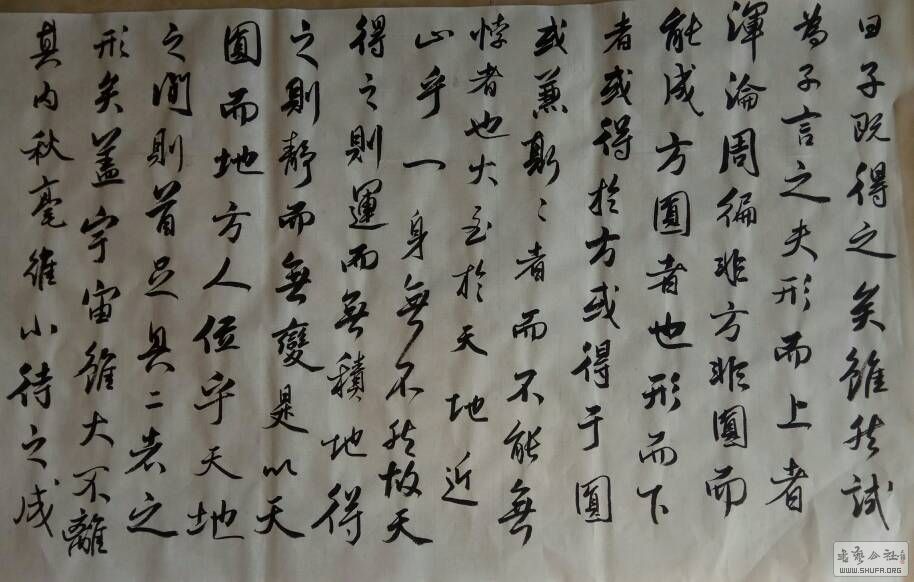 曰子既得之矣雖然試
為子言之夫形而上者
渾淪周徧非方非圓而
能成方圓者也形而下
者或得於方或得于圓
或兼斯〻者而不能無
悖者也大至於天地近
止乎一身無不然故天
得之則運而無積地得
之則靜而無變是以天
圓而地方人位乎天地
之間則首足具二者之
形矣蓋宇宙雖大不離
其內秋毫雖小待之成
书艺公社
WWW.SHUFA.ORG